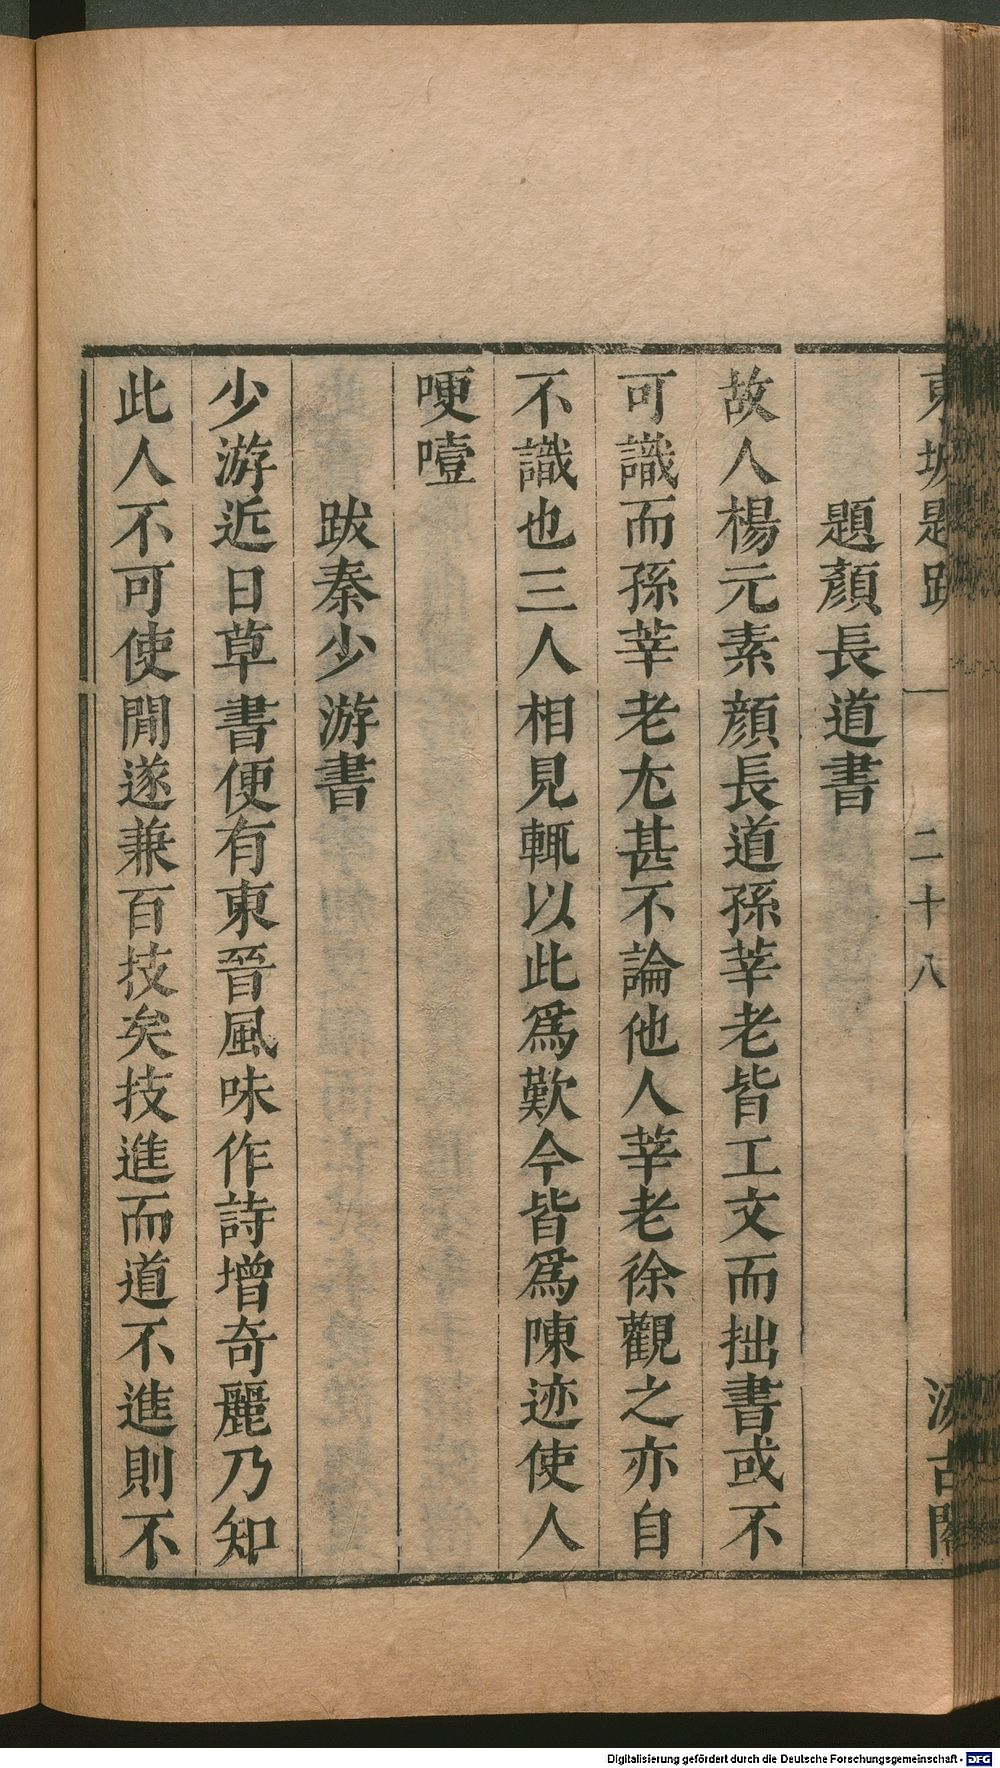 東坡題跋
二十八
汲古閣
題顔長道書
故人楊元素顔長道孫莘老皆工文而拙書或不
可識而孫莘老尤甚不論他人莘老徐觀之亦自
不識也三人相見輒以此爲歎今皆爲陳迹使人
哽噎
跋秦少游書
少游近日草書便有東晉風味作詩增奇麗乃知
此人不可使閒遂兼百技矣技進而道不進則不
Digitalisierung gefördert durch die Deutsche Forschungsgemeinschaft - DFG